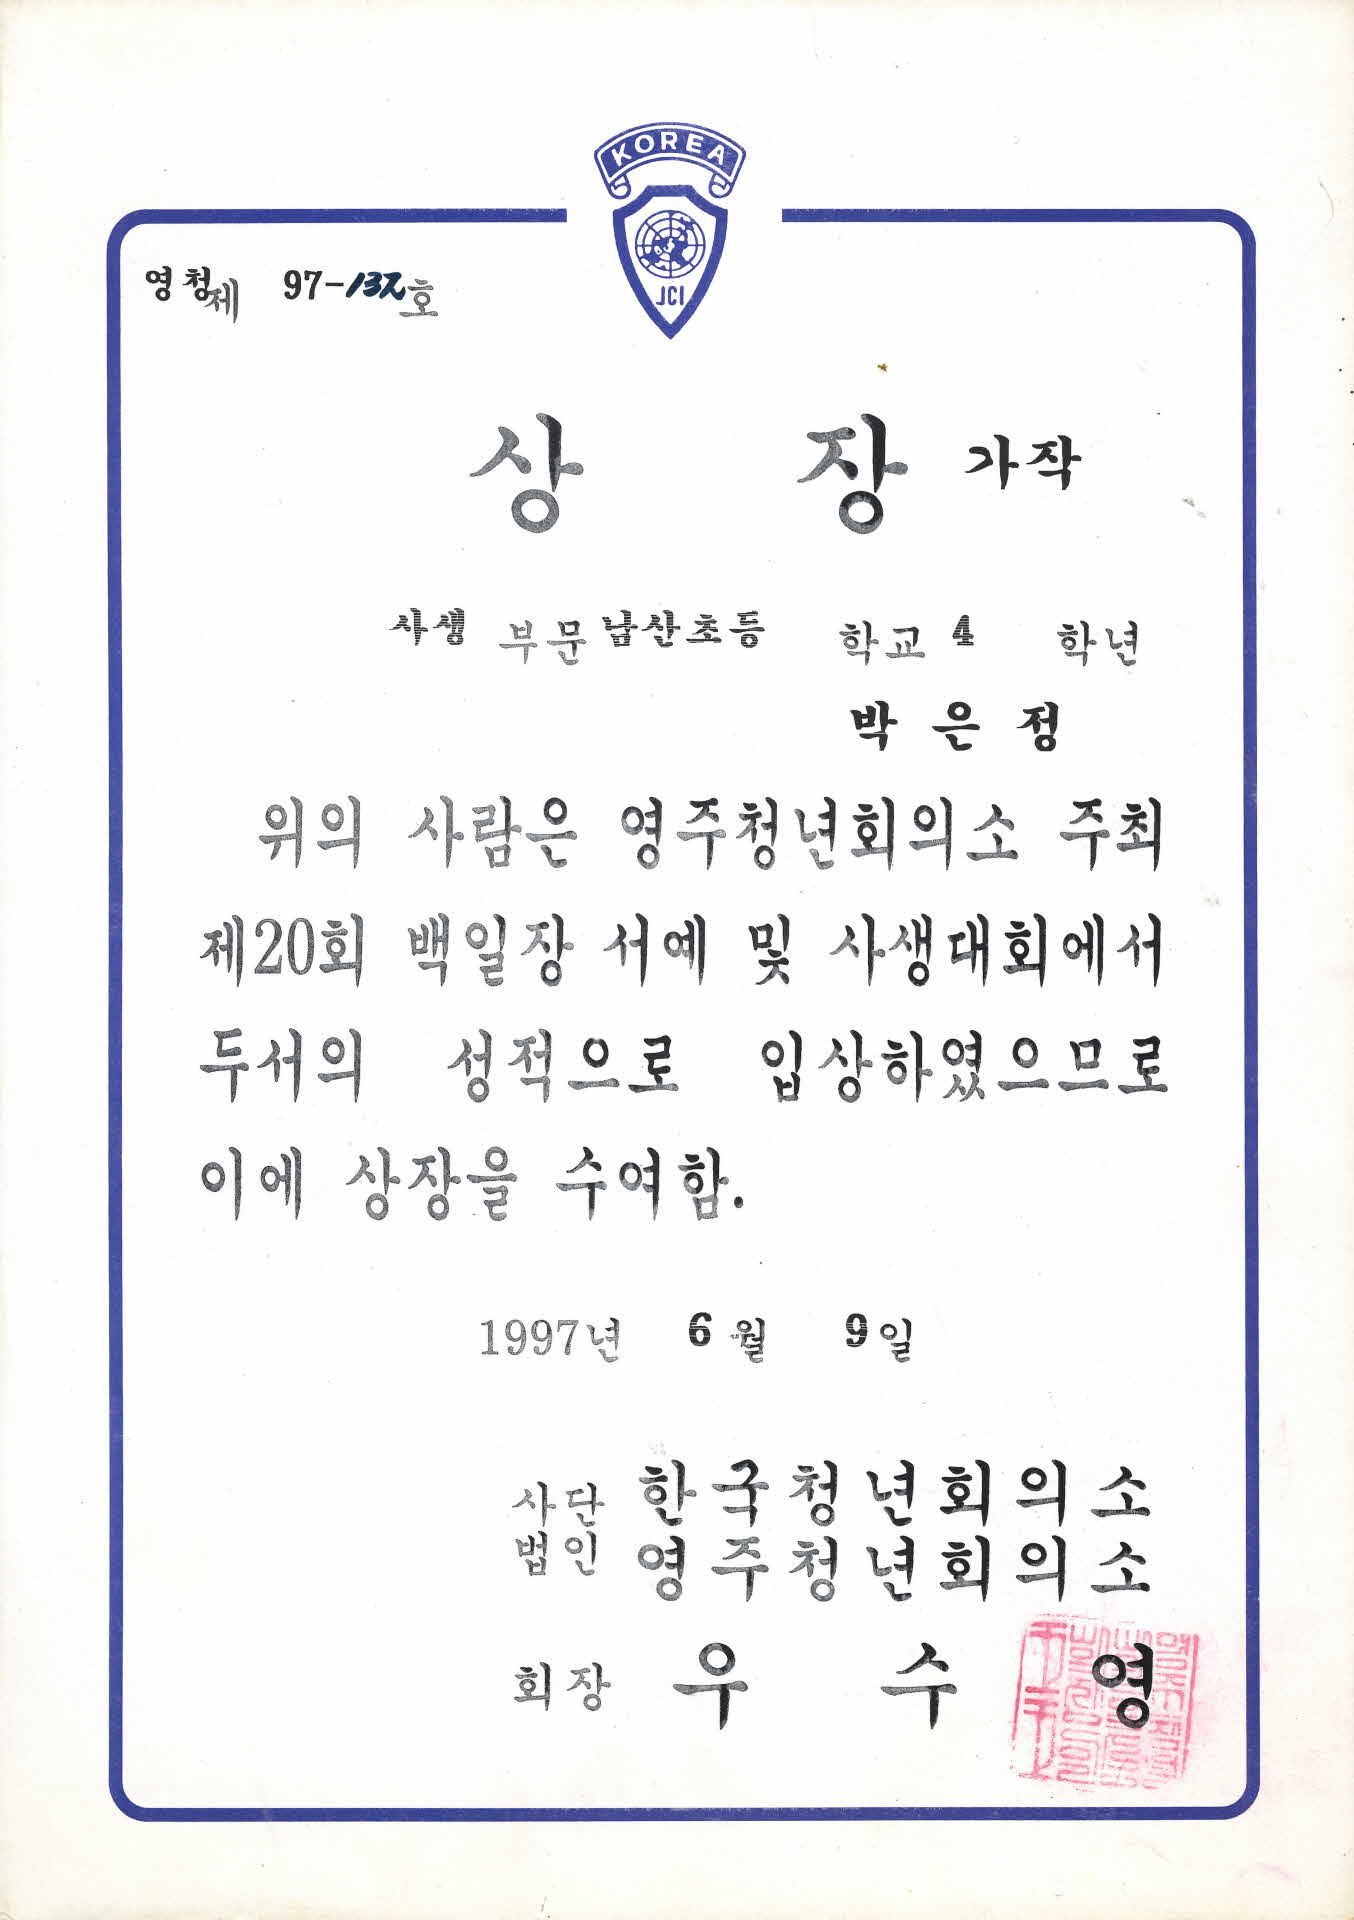 KOREA
JCI
영청제 97-132호
상 장 가작
사생 부문 남산초등 학교 4 학년
박은정
위의 사람은 영주청년회의소 주최
제20회 백일장 서예 및 사생대회에서
두서의 성적으로 입상하였으므로
이에 상장을 수여함.
1997년 6월 9일
사단 한국청년회의소
법인 영주청년회의소
회장 우수영